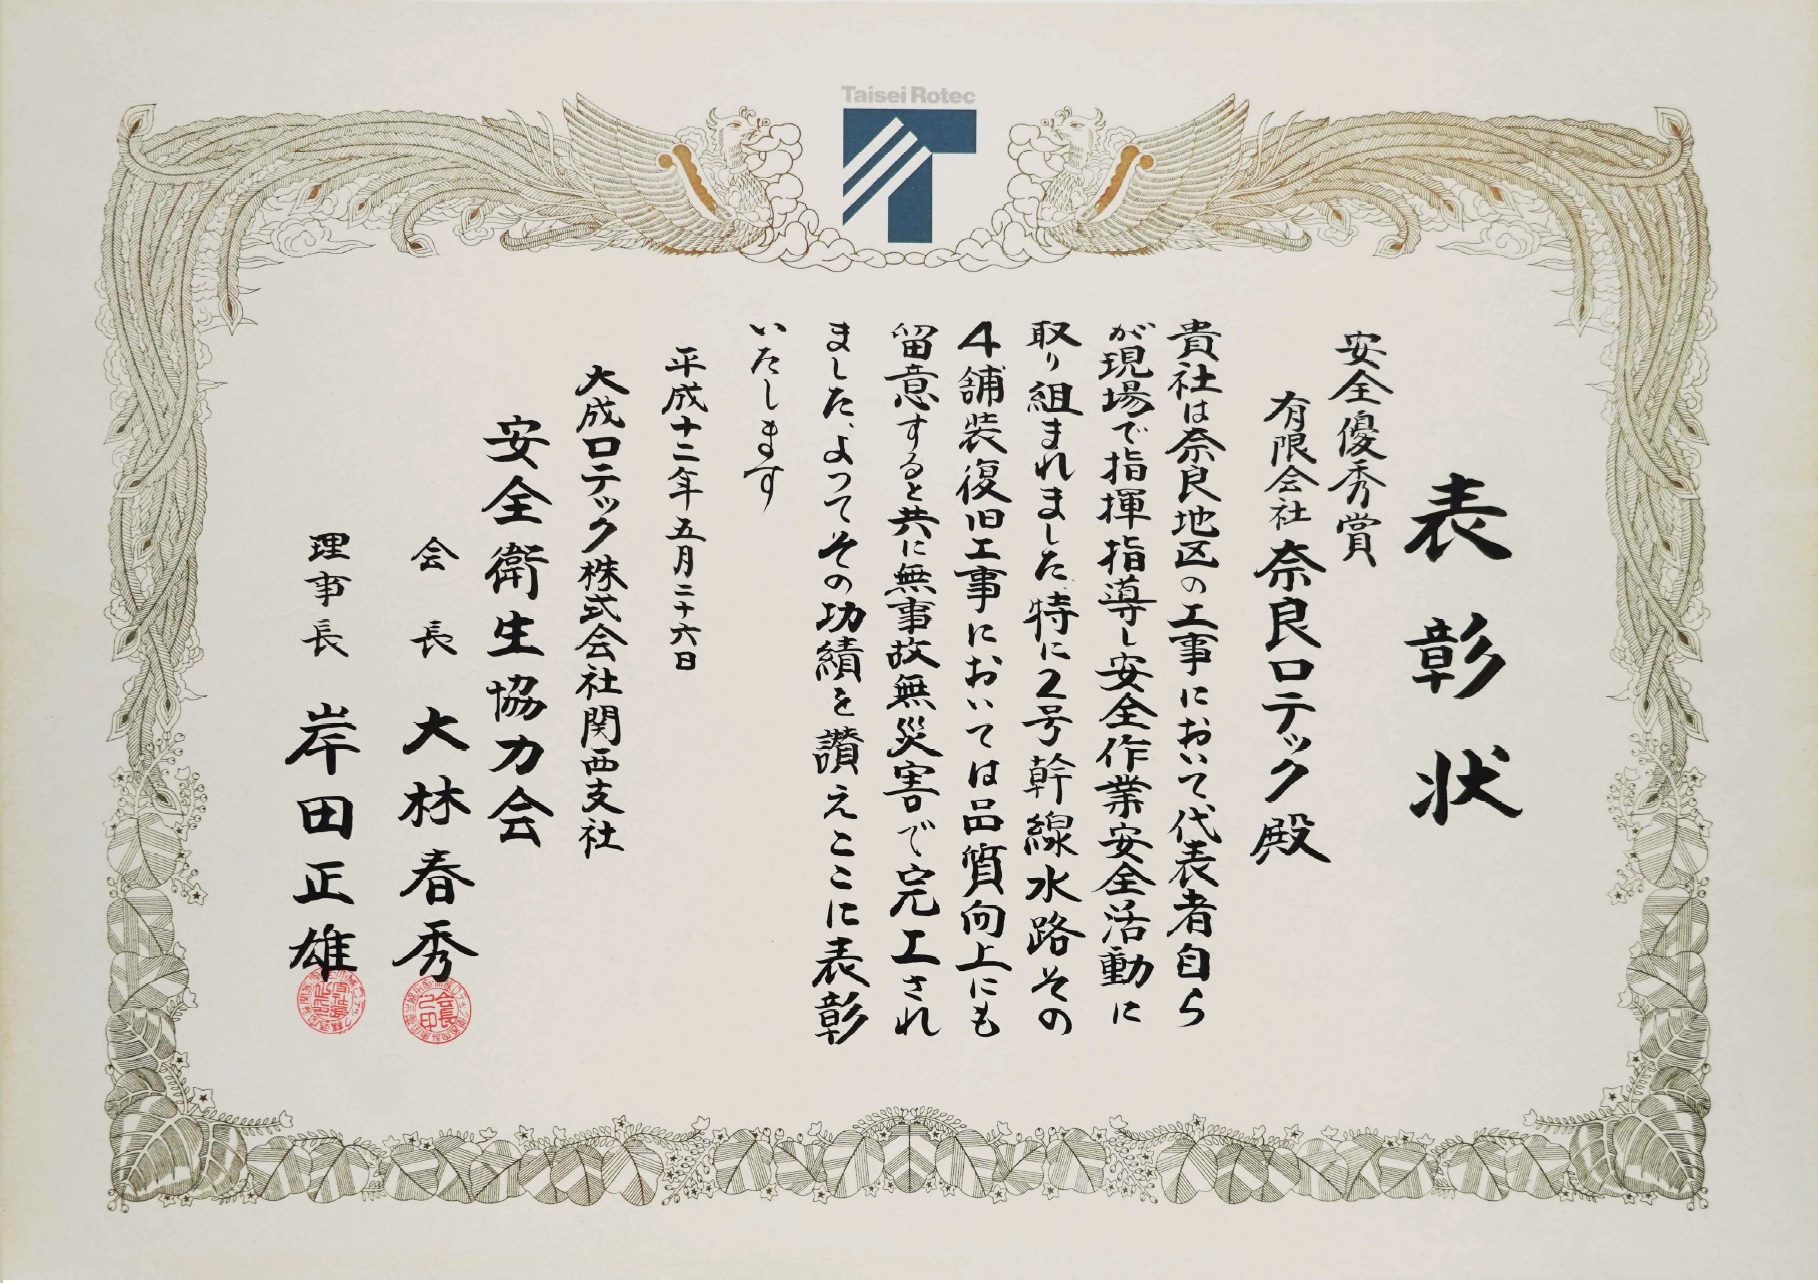 Taisei Rotec
表彰状
安全優秀賞
有限会社 奈良ロテック 殿
貴社は奈良地区の工事において代表者自ら
が現場で指揮指導し安全作業安全活動に
取り組まれました、特に2号幹線水路その
4舗装復旧工事においては品質向上にも
留意すると共に無事故無災害で完工され
ました、よってその功績を讃えここに表彰
いたします
平成十二年五月二十六日
大成ロテック株式会社関西支社
安全衛生協力会
会長 大林春秀
理事長 岸田正雄